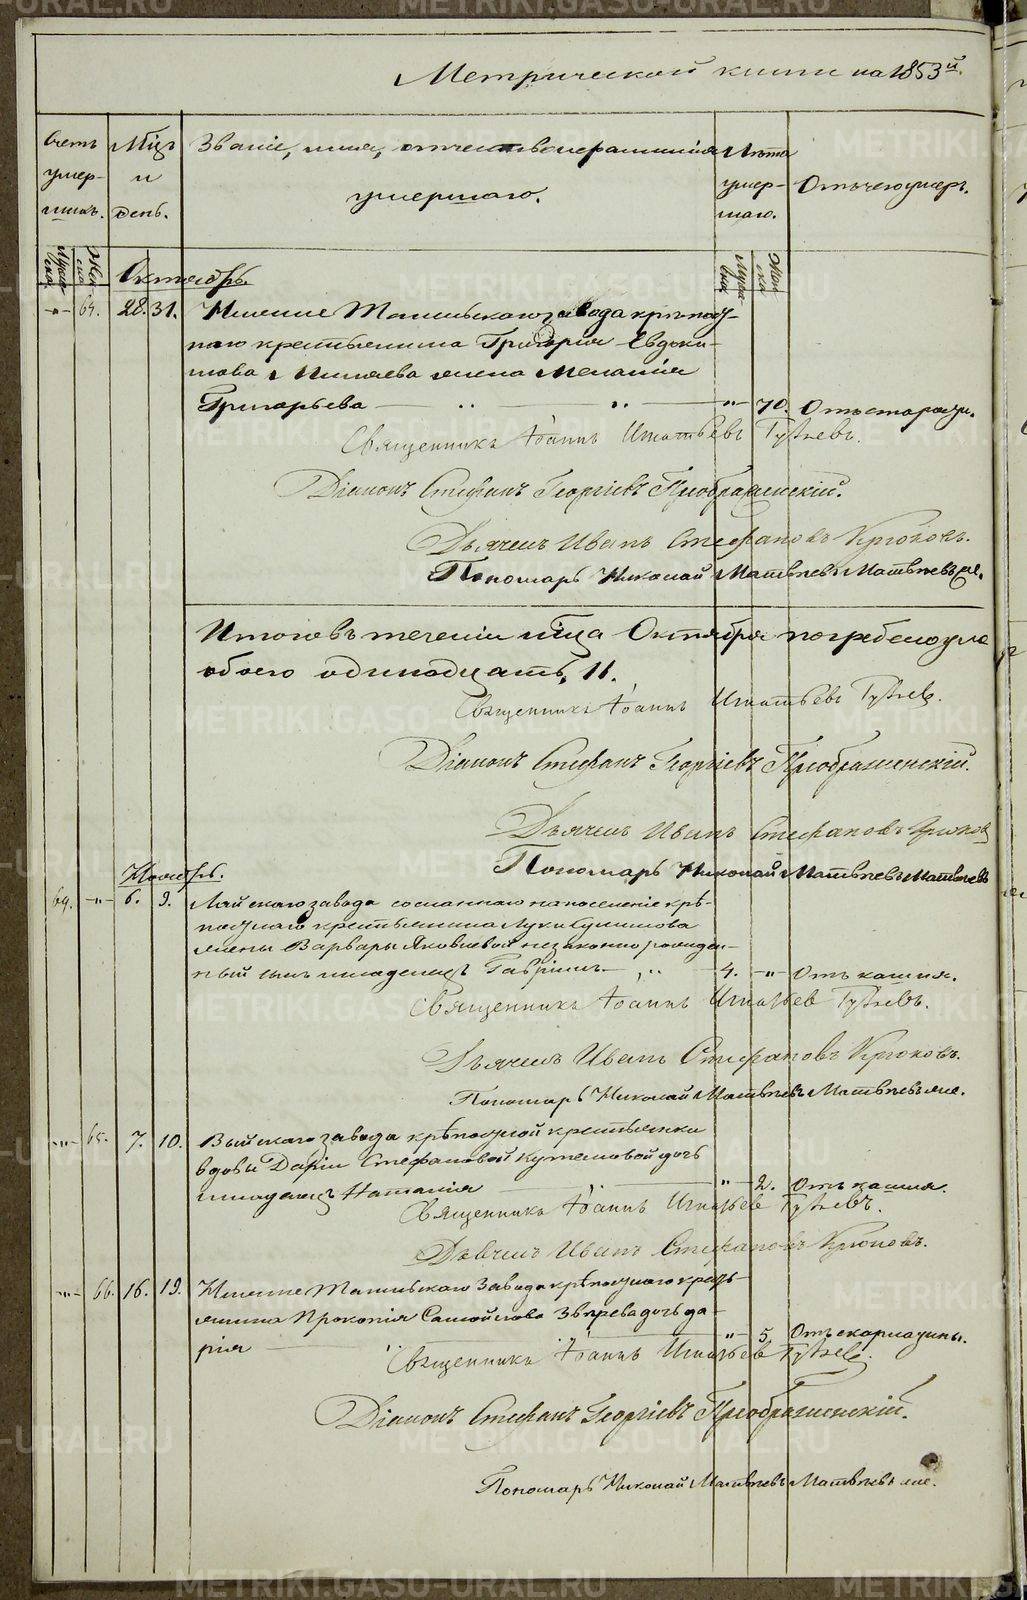 METRIKI.GASO-URAL.RU
Метрической книги на 1853й.
Счетъ умер-шихъ.
Мѣцъ и день.
Званіе, имя, отчество и фамилия умершаго.
Лѣта умер-шаго.
Отъ чего умеръ.
Муже-ска
Жен-ска
Муже-ска
Жен-ска
Октябрь.
-"- 64. 28. 31. Нижне Тагильскаго завода крѣпост-
наго крестьянина Григорія Евдоки-
мова Миняева жена Меланія
Григорьева " 70. Отъ старости.
Священникъ Іоаннъ Игнатьевъ
Діаконъ Стефанъ Георгіевъ Преображенскій.
Дьячекъ Иванъ Стефановъ Крюковъ.
Пономарь Николай Матвѣевъ Матвѣевыхъ.
Итого въ теченіи мѣца Октября погребено пола
обоего одинадцать, 11.
Священникъ Іоаннъ Игнатьевъ
Діаконъ Стефанъ Георгіевъ Преображенскій.
Дьячекъ Иванъ Стефановъ Крюковъ
Пономарь Николай Матвѣевъ Матвѣевъ
Ноябрь.
69. -"- 6. 9. Лайскаго завода сосланнаго на поселеніе крѣ-
постнаго крестьянина Луки
жены Варвары Яковлевой незаконно рожден-
ный сынъ младенецъ Гавріилъ 4. -"- Отъ кашля.
Священникъ Іоаннъ Игнатьев
Дьячекъ Иванъ Стефановъ Крюковъ.
Пономарь Николай Матвѣевъ Матвѣевыхъ.
-"- 65. 7. 10. Выйскаго завода крѣпостной крестьянки
вдовы Даріи Стефановой дочь
младенецъ Наталія " 2. Отъ кашля.
Священникъ Іоаннъ Игнатьев
Дьячекъ Иванъ Стефановъ Крюковъ.
-"- 66. 16. 19. Нижне Тагильскаго завода крѣпостнаго кресть-
янина Прокопія Самойлова Звѣрева дочь Да-
рія " 5. Отъ скарлатины.
Священникъ Іоаннъ Игнатьев
Діаконъ Стефанъ Георгіевъ Преображенскій.
Пономарь Николай Матвѣевъ Матвѣевыхъ.